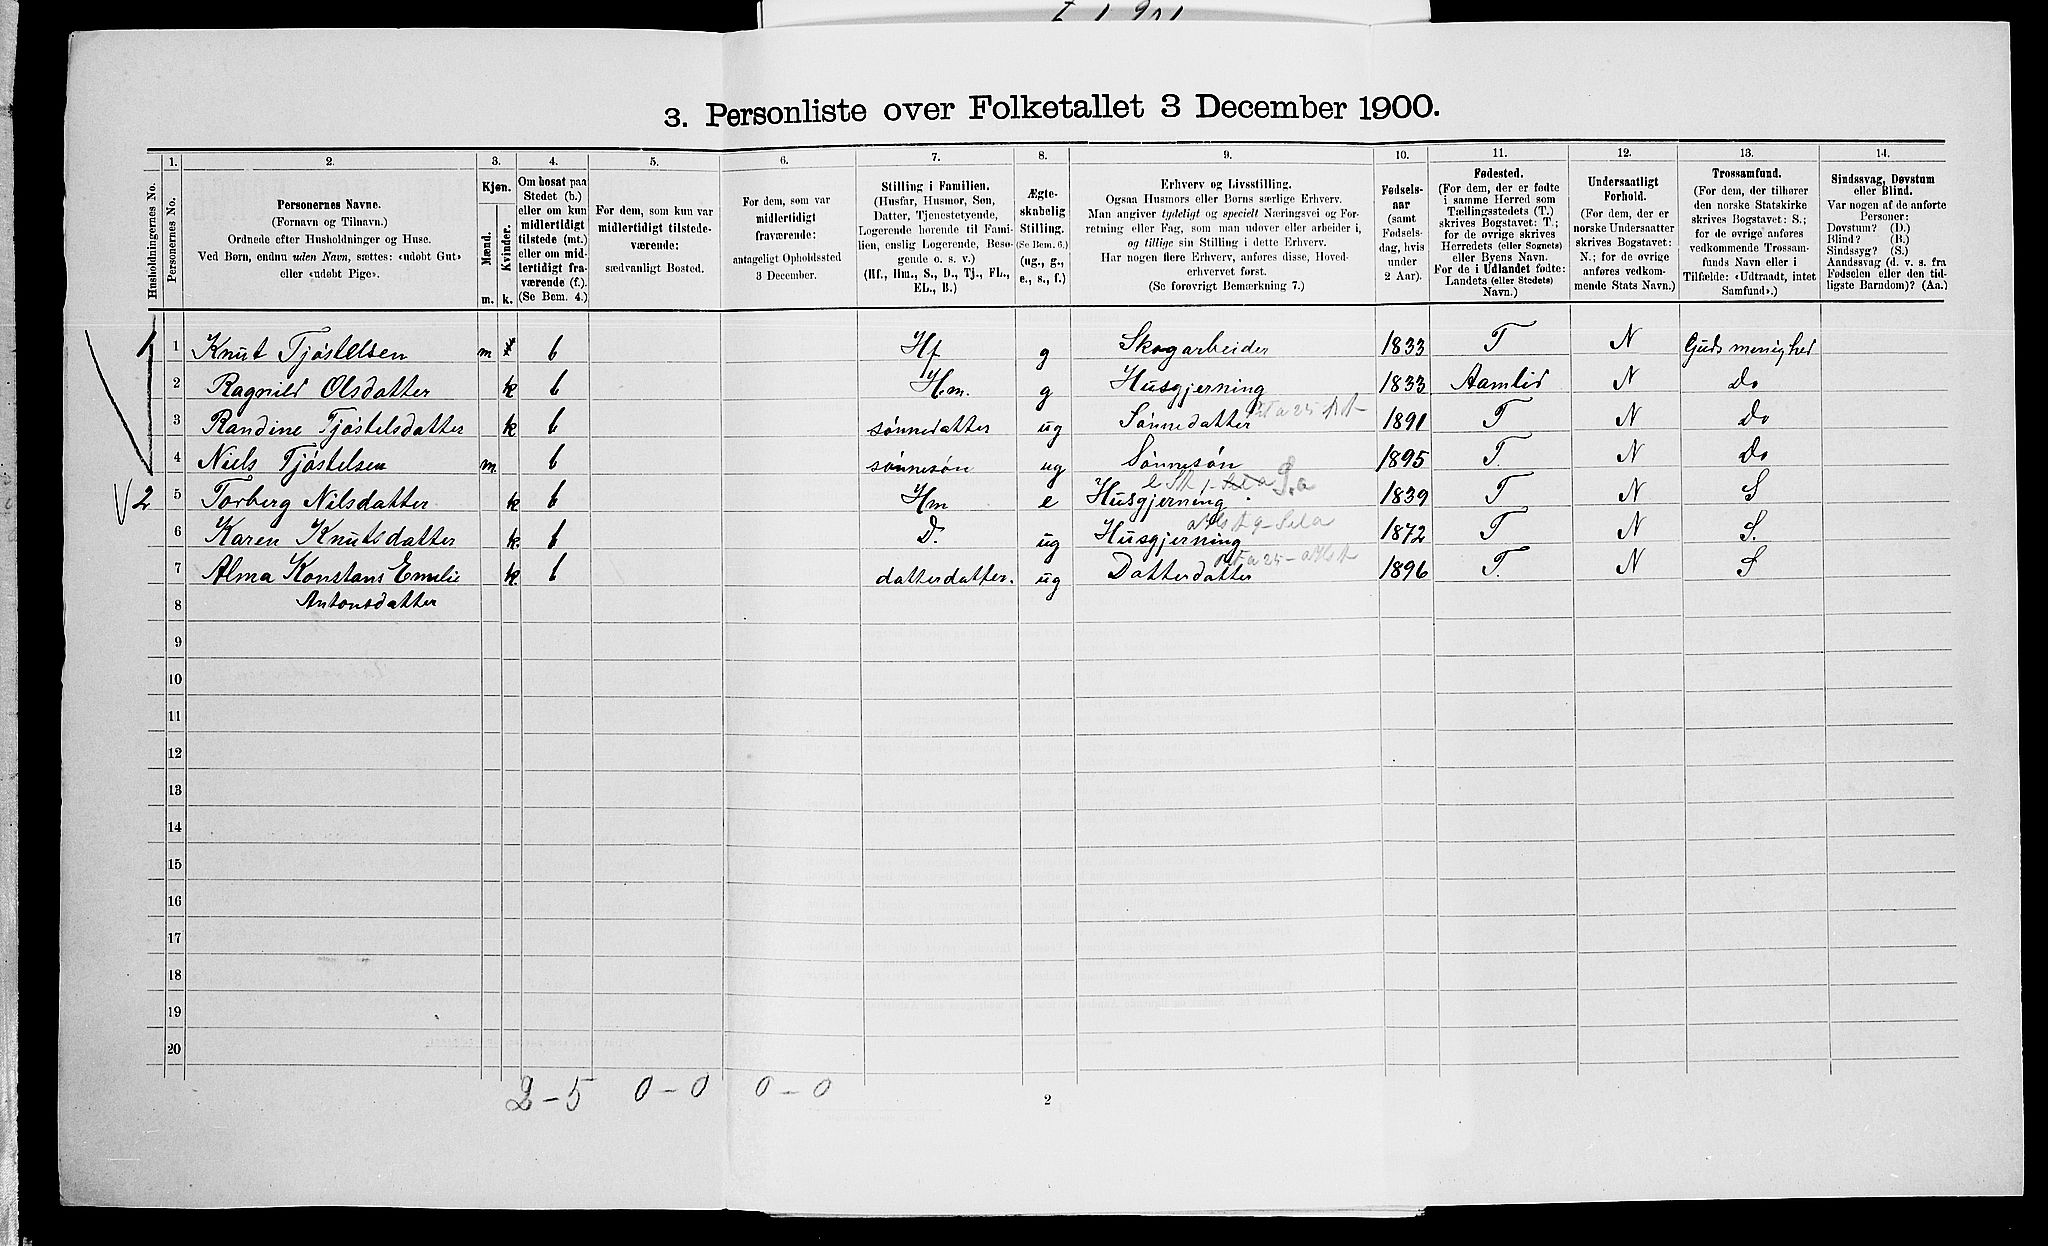 3. Personliste over Folketallet 3 December 1900.
1. 2. 3. 4. 5. 6. 7. 8. 9. 10. 11. 12. 13. 14.
Husholdningernes No.
Personernes No.
Personernes Navne.
(Fornavn og Tilnavn.)
Ordnede efter Husholdninger og Huse.
Ved Børn, endnu uden Navn, sættes: «udøbt Gut»
eller «udøbt Pige».
Kjøn.
Mænd.
Kvinder.
m. k.
Om bosat paa
Stedet (b.)
eller om kun
midlertidigt
tilstede (mt.)
eller om mid-
lertidigt fra-
værende (f.).
(Se Bem. 4.)
For dem, som kun var
midlertidigt tilstede-
værende:
sædvanligt Bosted.
For dem, som var
midlertidigt
fraværende:
antageligt Opholdssted
3 December.
Stilling i Familien.
(Husfar, Husmor, Søn,
Datter, Tjenestetyende,
Logerende hørende til Fami-
lien, enslig Logerende, Besø-
gende o. s. v.)
(Hf., Hm., S., D., Tj., FL.,
EL., B.)
Ægte-
skabelig
Stilling.
(Se Bem. 6.)
(ug., g.,
e., s., f.)
Erhverv og Livsstilling.
Ogsaa Husmors eller Børns særlige Erhverv.
Man angiver tydeligt og specielt Næringsvei og For-
retning eller Fag, som man udøver eller arbeider i,
og tillige sin Stilling i dette Erhverv.
Har nogen flere Erhverv, anføres disse, Hoved-
erhvervet først.
(Se forøvrigt Bemærkning 7.)
Fødsels-
aar
(samt
Fødsels-
dag, hvis
under
2 Aar).
Fødested.
(For dem, der er fødte
i samme Herred som
Tællingsstedets (T.)
skrives Bogstavet: T.;
for de øvrige skrives
Herredets (eller Sognets)
eller Byens Navn.
For de i Udlandet fødte:
Landets (eller Stedets)
Navn.)
Undersaatligt
Forhold.
(For dem, der er
norske Undersaatter
skrives Bogstavet:
N.; for de øvrige
anføres vedkom-
mende Stats Navn.)
Trossamfund.
(For dem, der tilhører
den norske Statskirke
skrives Bogstavet: S.;
for de øvrige anføres
vedkommende Trossam-
funds Navn eller i
Tilfælde: «Udtraadt, intet
Samfund».)
Sindssvag, Døvstum
eller Blind.
Var nogen af de anførte
Personer:
Døvstum? (D.)
Blind? (B.)
Sindssyg? (S.)
Aandssvag (d. v. s. fra
Fødselen eller den tid-
ligste Barndom)? (Aa.)
1 1 Knut Tjøstelsen m b Hf g Skogarbeider 1833 T N Guds menighed
2 Ragnild Olsdatter k b Hm. g Husgjerning 1833 Aamlid N Do
3 Randine Tjøstelsdatter k b sønnedatter ug Sønnedatter 1891 T N Do
4 Niels Tjøstelsen m. b sønnesøn ug Sønnesøn 1895 T. N Do
2 5 Torberg Nilsdatter k b Hm e Husgjerning 1839 T N S
6 Karen Knutsdatter k. b D. ug Husgjerning 1872 T N S.
7 Alma Konstans Emelie k b datterdatter. ug Datterdatter 1896 T. N S
8 Antonsdatter
9
10
11
12
13
14
15
16
17
18
19
20
2-5 0-0 0-0
2